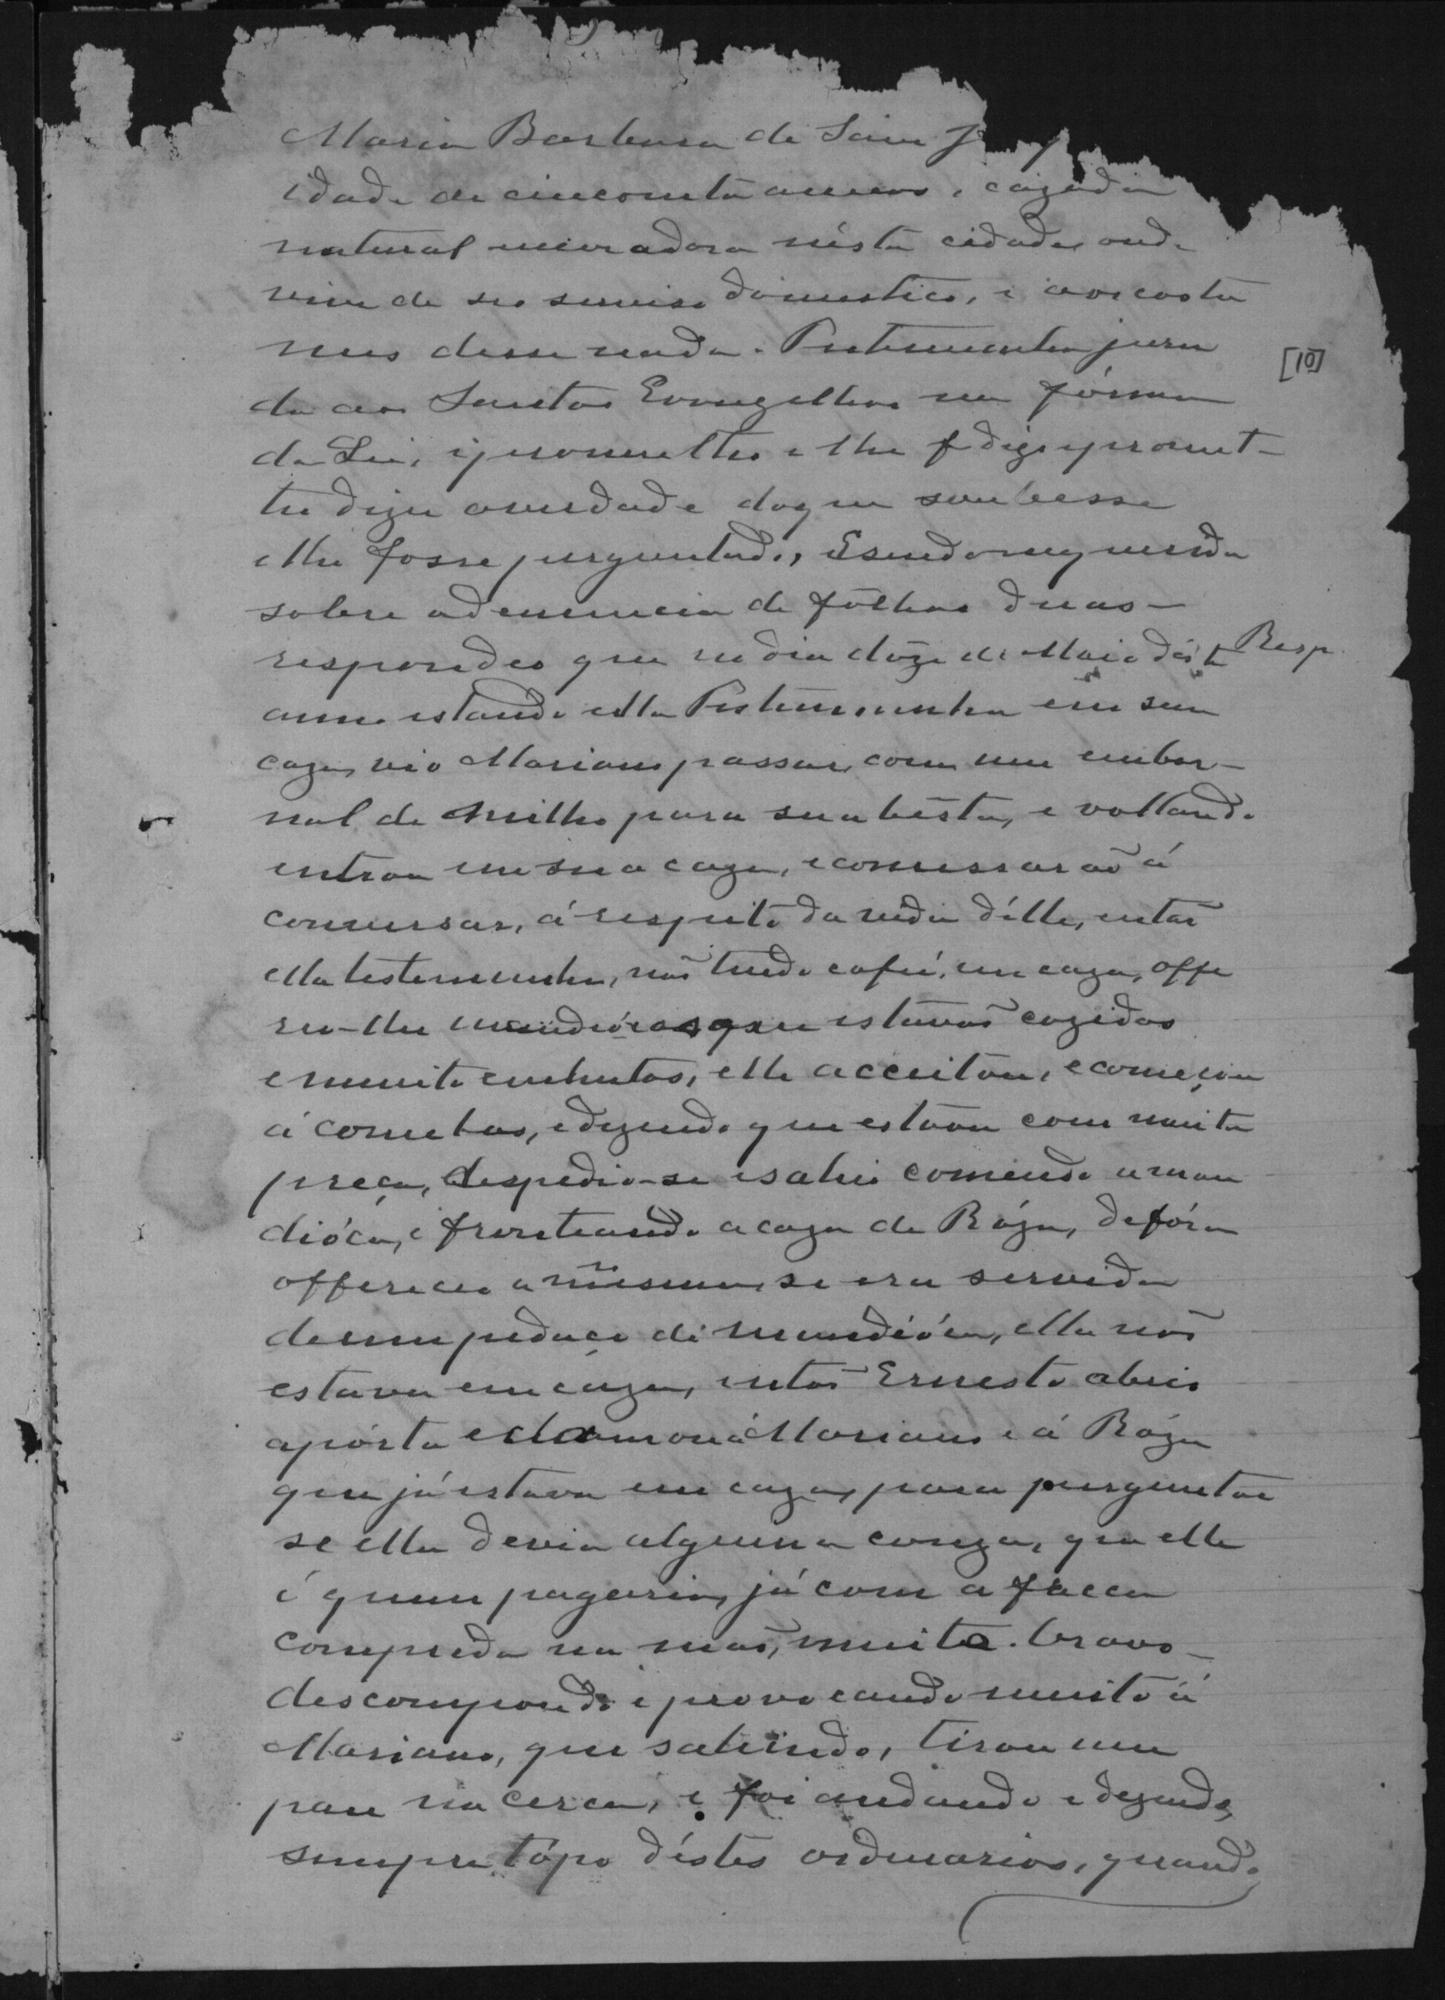 Maria Barbara de
idade de cincoenta annos, cazada
natural moradora nésta cidade, onde
vive de seo serviso domestico, e aos costu
mes disse nada. Testemunha jura
da aos Santos Evangelhos na fórma
da Lei, e promet-
teu dizer averdade doque soubesse
e lhe fosse perguntado, Esendo inquerida
sobre adenuncia de fôlhas duas—
respondeo que no dia dôze de Maio déste
Resp.
anno estando ella Testemunha em sua
caza, vio Mariano passar, com um embor-
nal de milho para sua bêsta, e voltando
entrou em sua caza, e comessarão á
conversar, á respeito da vida délle, então
ella testemunha, não tendo café, em caza, offe
reo-lhe mandiócas que estavão cozidas
e muito enchutas, elle acceitou, e começou
á comelas, edizendo que estava com muita
preça, despedio-se e sahio comendo aman
dióca, e fronteando a caza de Róza, defóra
offereceo a mesma, se era servida
deum pedaço de mandióca, ella não
estava em caza, então Ernesto abrio
apórta e chamou á Mariano e á Róza
que já estava em caza, para perguntar
se ella devia alguma couza, que elle
é quem pagaria, já com a facca
comprida na mão, muito bravo—
descompondo e provocando muito á
Mariano, que sahindo, tirou um
pau na cerca, e foi andando e dizendo,
sempre tópo déstes ordinarios, quando
[10]